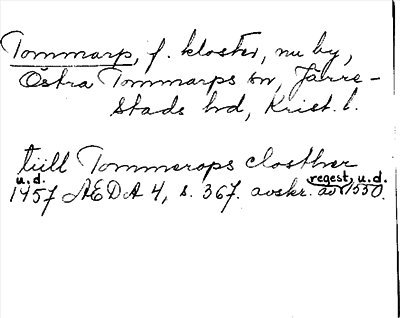 Tommarp, f. kloster, nu by,
Östra Tommarps sn, Järre-
stads hd, Krist. l.
tiill Tommerops closther
u.d. regest, u.d.
1457 ÆDA 4, s. 367. avskr. av 1550.